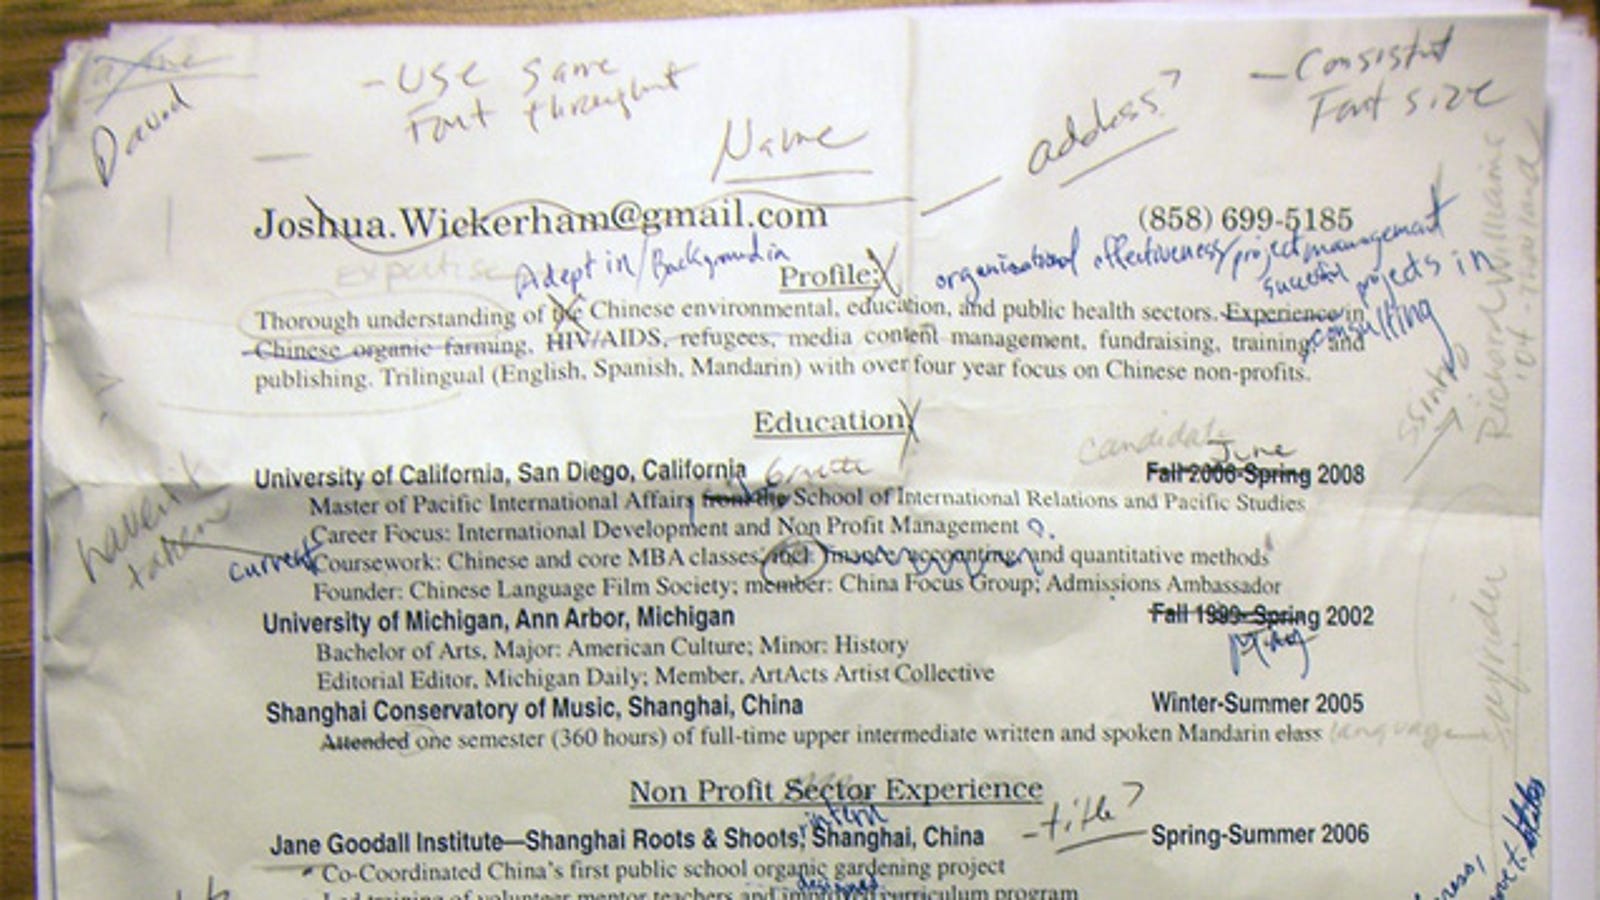 David
- Use same
Font throughout
Name
address?
- Consistent
Font size
Joshua.Wickerham@gmail.com
(858) 699-5185
expertise
Adept in/Background in
Profile:
organizational effectiveness/project management
successful projects in
consulting
Thorough understanding of the Chinese environmental, education, and public health sectors. Experience in
Chinese organic farming, HIV/AIDS, refugees, media content management, fundraising, training, and
publishing. Trilingual (English, Spanish, Mandarin) with over four year focus on Chinese non-profits.
Richard Williams
'04 - Thailand
Education
candidate
June
University of California, San Diego, California
Fall 2006-Spring 2008
Master of Pacific International Affairs from the School of International Relations and Pacific Studies
Career Focus: International Development and Non Profit Management
haven't
taken
current
Coursework: Chinese and core MBA classes, incl. finance, accounting, and quantitative methods
Founder: Chinese Language Film Society; member: China Focus Group; Admissions Ambassador
University of Michigan, Ann Arbor, Michigan
Fall 1999- Spring 2002
May
Bachelor of Arts, Major: American Culture; Minor: History
Editorial Editor, Michigan Daily; Member, ArtActs Artist Collective
Shanghai Conservatory of Music, Shanghai, China
Winter-Summer 2005
Attended one semester (360 hours) of full-time upper intermediate written and spoken Mandarin class
language
Non Profit Sector Experience
intern
- title?
Jane Goodall Institute—Shanghai Roots & Shoots, Shanghai, China
Spring-Summer 2006
Co-Coordinated China's first public school organic gardening project
designed
Led training of volunteer mentor teachers and improved curriculum program